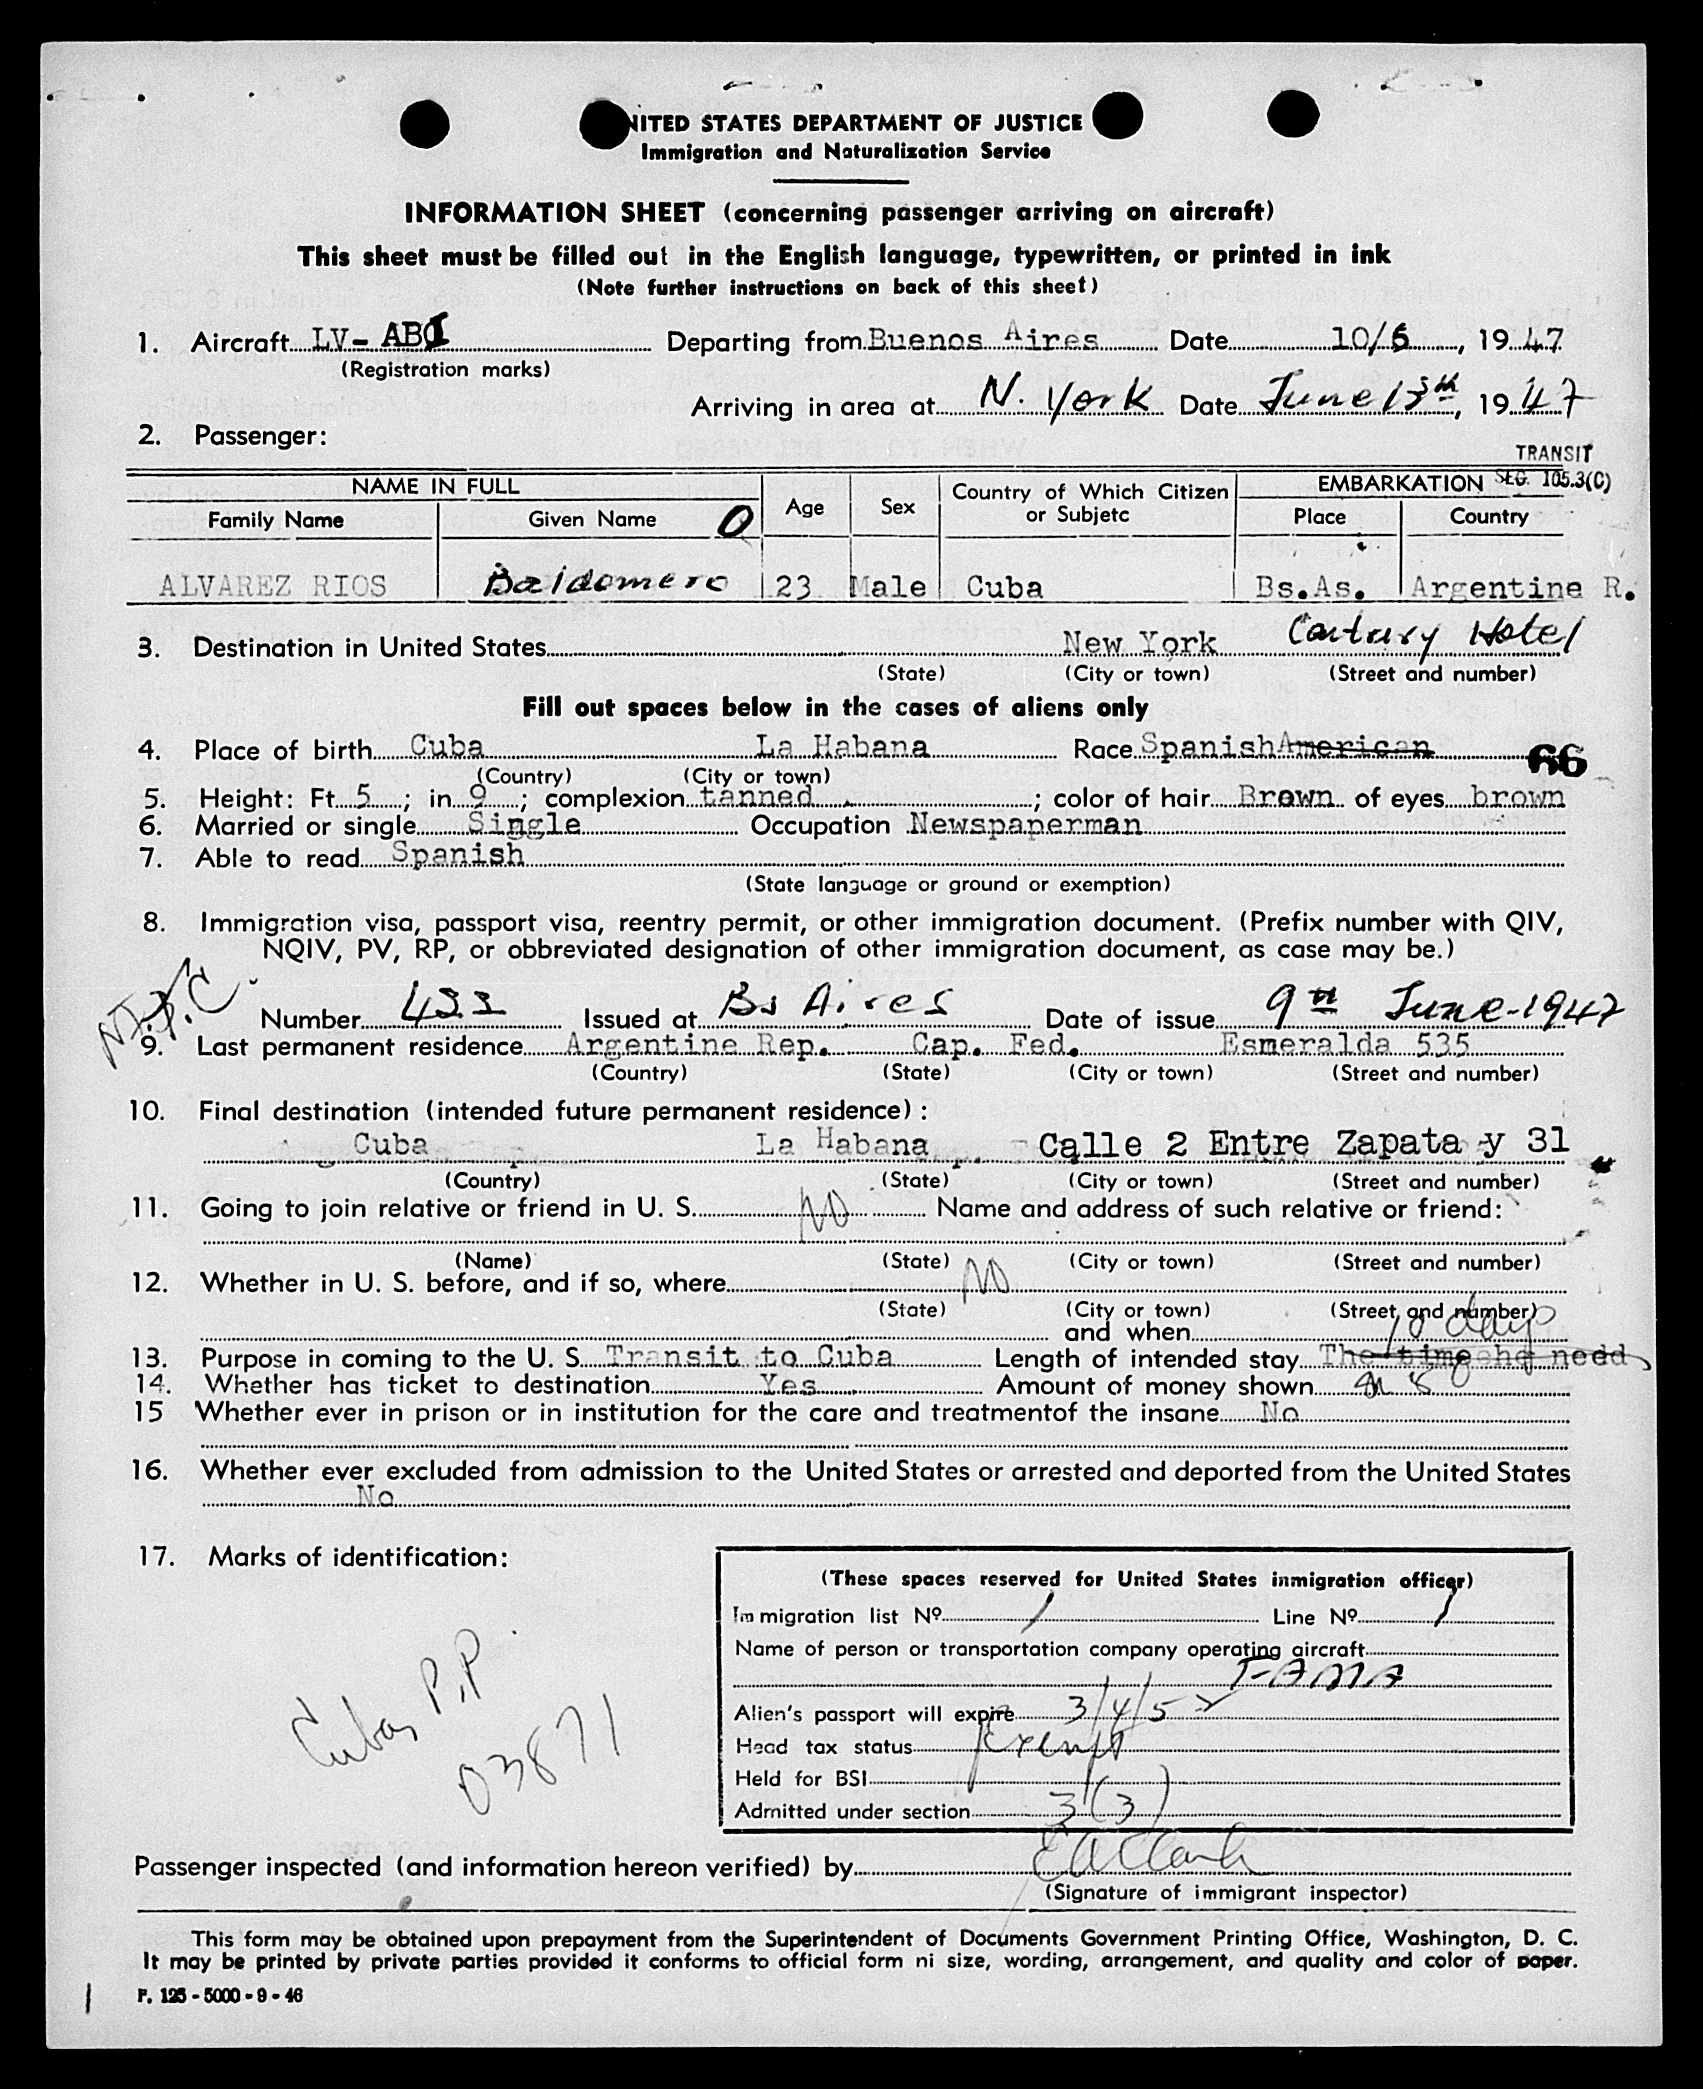 UNITED STATES DEPARTMENT OF JUSTICE
Immigration and Naturalization Service
INFORMATION SHEET (concerning passenger arriving on aircraft)
This sheet must be filled out in the English language, typewritten, or printed in ink
(Note further instructions on back of this sheet)
1. Aircraft LV- AB Departing from Buenos Aires Date 10/6, 1947
(Registration marks)
Arriving in area at N. York Date June 13th, 1947
2. Passenger:
TRANSIT
NAME IN FULL EMBARKATION SEG. 105.3(C)
Family Name Given Name O Age Sex Country of Which Citizen or Subjetc Place Country
ALVAREZ RIOS Baldomero 23 Male Cuba Bs.As. Argentine R.
3. Destination in United States New York Century Hotel
(State) (City or town) (Street and number)
Fill out spaces below in the cases of aliens only
4. Place of birth Cuba La Habana Race Spanish American 66
(Country) (City or town)
5. Height: Ft. 5; in. 9; complexion tanned; color of hair Brown of eyes brown
6. Married or single Single Occupation Newspaperman
7. Able to read Spanish
(State language or ground or exemption)
8. Immigration visa, passport visa, reentry permit, or other immigration document. (Prefix number with QIV,
NQIV, PV, RP, or obbreviated designation of other immigration document, as case may be.)
Number 433 Issued at Bs Aires Date of issue 9th June-1947
9. Last permanent residence Argentine Rep. Cap. Fed. Esmeralda 535
(Country) (State) (City or town) (Street and number)
10. Final destination (intended future permanent residece) :
Cuba La Habana Calle 2 Entre Zapata y 31
(Country) (State) (City or town) (Street and number)
11. Going to join relative or friend in U. S. NO Name and address of such relative or friend:
(Name) (State) (City or town) (Street and number)
12. Whether in U. S. before, and if so, where NO
(State) (City or town) (Street and number)
and when 10 days
13. Purpose in coming to the U. S. Transit to Cuba Length of intended stay The time he need
14. Whether has ticket to destination Yes Amount of money shown
15 Whether ever in prison or in institution for the care and treatmentof the insane No
16. Whether ever excluded from admission to the United States or arrested and deported from the United States
No
17. Marks of identification:
Cuban P.P
03871
(These spaces reserved for United States inmigration officer)
Immigration list Nº 1 Line Nº 1
Name of person or transportation company operating aircraft
FAMA
Alien's passport will expire 3/4/5
Head tax status Exempt
Held for BSI
Admitted under section 3(3)
Passenger inspected (and information hereon verified) by EAClark
(Signature of immigrant inspector)
This form may be obtained upon prepayment from the Superintendent of Documents Government Printing Office, Washington, D. C.
It may be printed by private parties provided it conforms to official form ni size, wording, arrangement, and quality and color of paper.
F. 125 - 5000 - 9 - 46